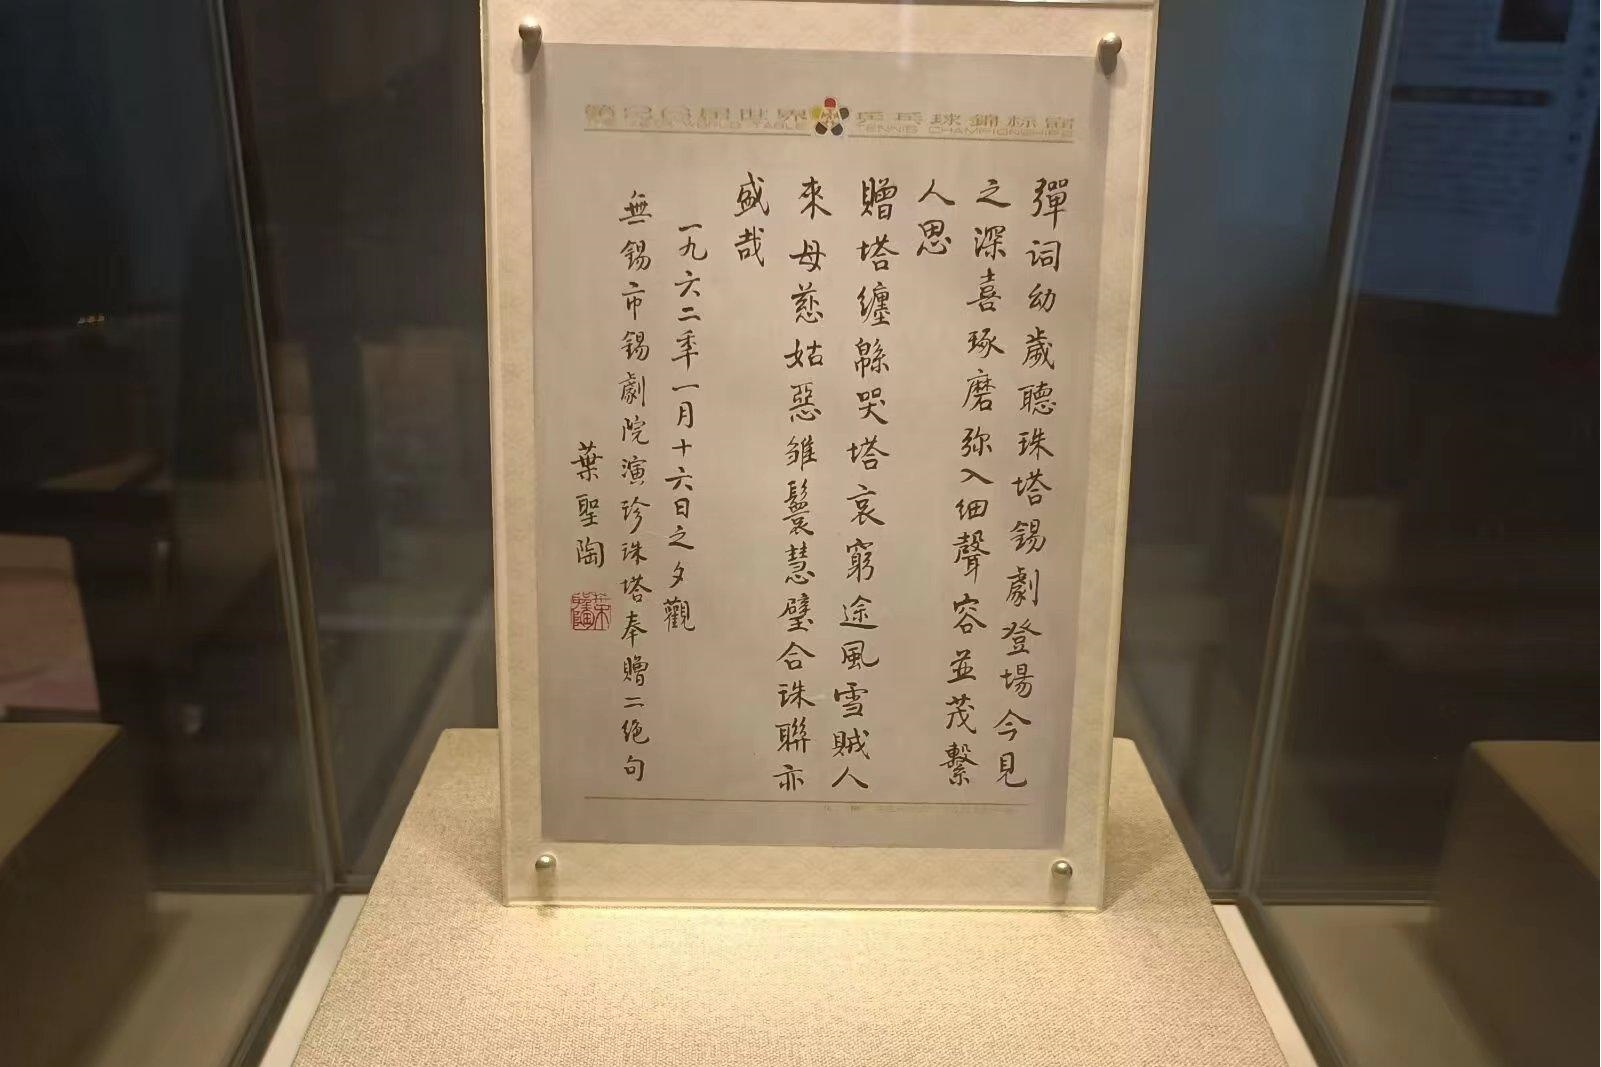 世界乒乓球錦标賽
WORLD TABLE TENNIS CHAMPIONSHIPS
彈词幼歲聽珠塔錫劇登場今見
之深喜琢磨弥入细聲容並茂繫
人思
贈塔纏緜哭塔哀窮途風雪贼人
來母慈姑惡雏鬟慧璧合珠聯亦
盛哉
一九六二年一月十六日之夕觀
無錫市錫劇院演珍珠塔奉贈二绝句
葉聖陶